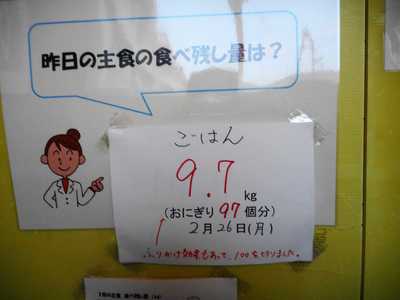 昨日の主食の食べ残し量は？
ごはん
9.7
kg
(おにぎり 97 個分)
2月 26日(月)
ふりかけ効果もあって、100をきりました。